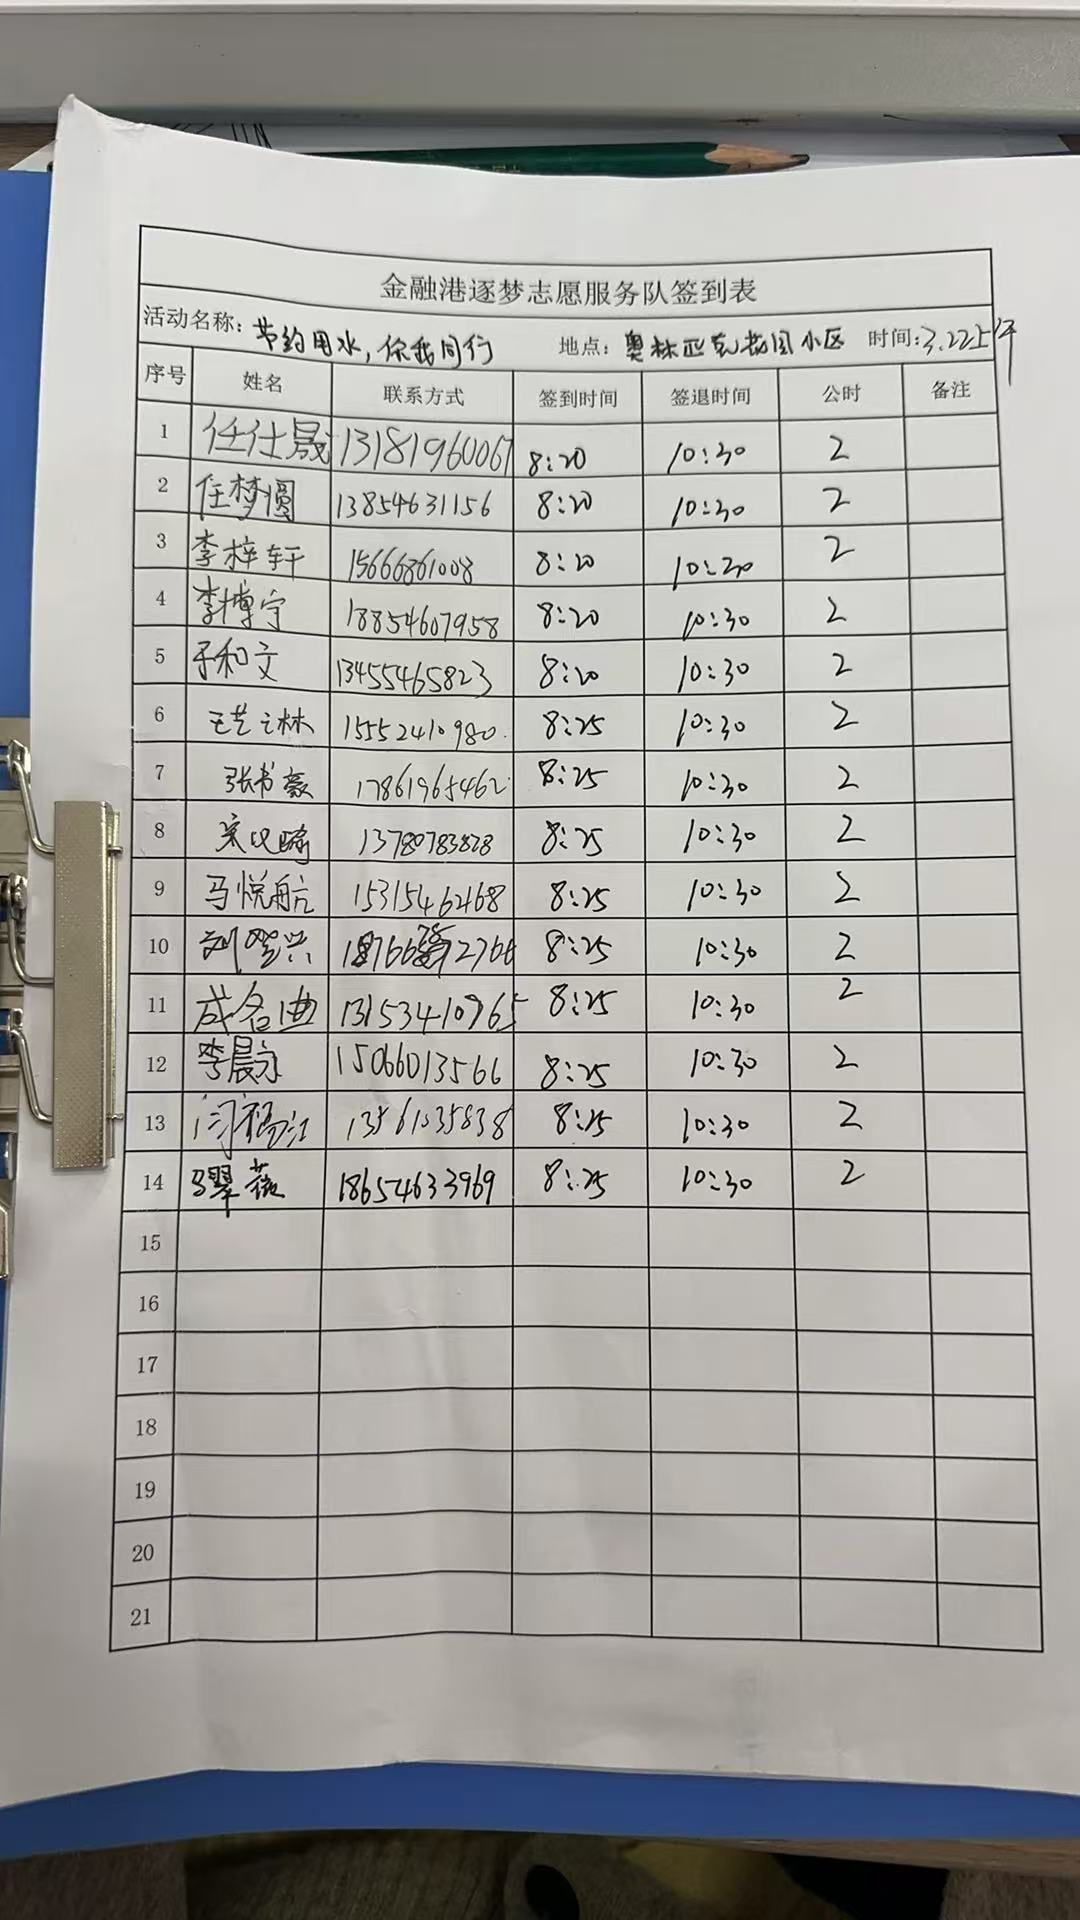 金融港逐梦志愿服务队签到表
活动名称: 节约用水,你我同行 地点: 奥林匹克花园小区 时间:3.22上午
序号 姓名 联系方式 签到时间 签退时间 公时 备注
1 任仕晟 13181960067 8:20 10:30 2
2 任梦圆 13854631156 8:20 10:30 2
3 李梓轩 15666861008 8:20 10:30 2
4 李博宇 18854607958 8:20 10:30 2
5 于和文 13455465823 8:20 10:30 2
6 王艺之林 15552410980 8:25 10:30 2
7 张书豪 17861965462 8:25 10:30 2
8 13780783828 8:25 10:30 2
9 马悦航 15315462468 8:25 10:30 2
10 8:25 10:30 2
11 成名曲 13153410765 8:25 10:30 2
12 李晨永 15066013566 8:25 10:30 2
13 13561035838 8:25 10:30 2
14 翠薇 18654633969 8:25 10:30 2
15
16
17
18
19
20
21